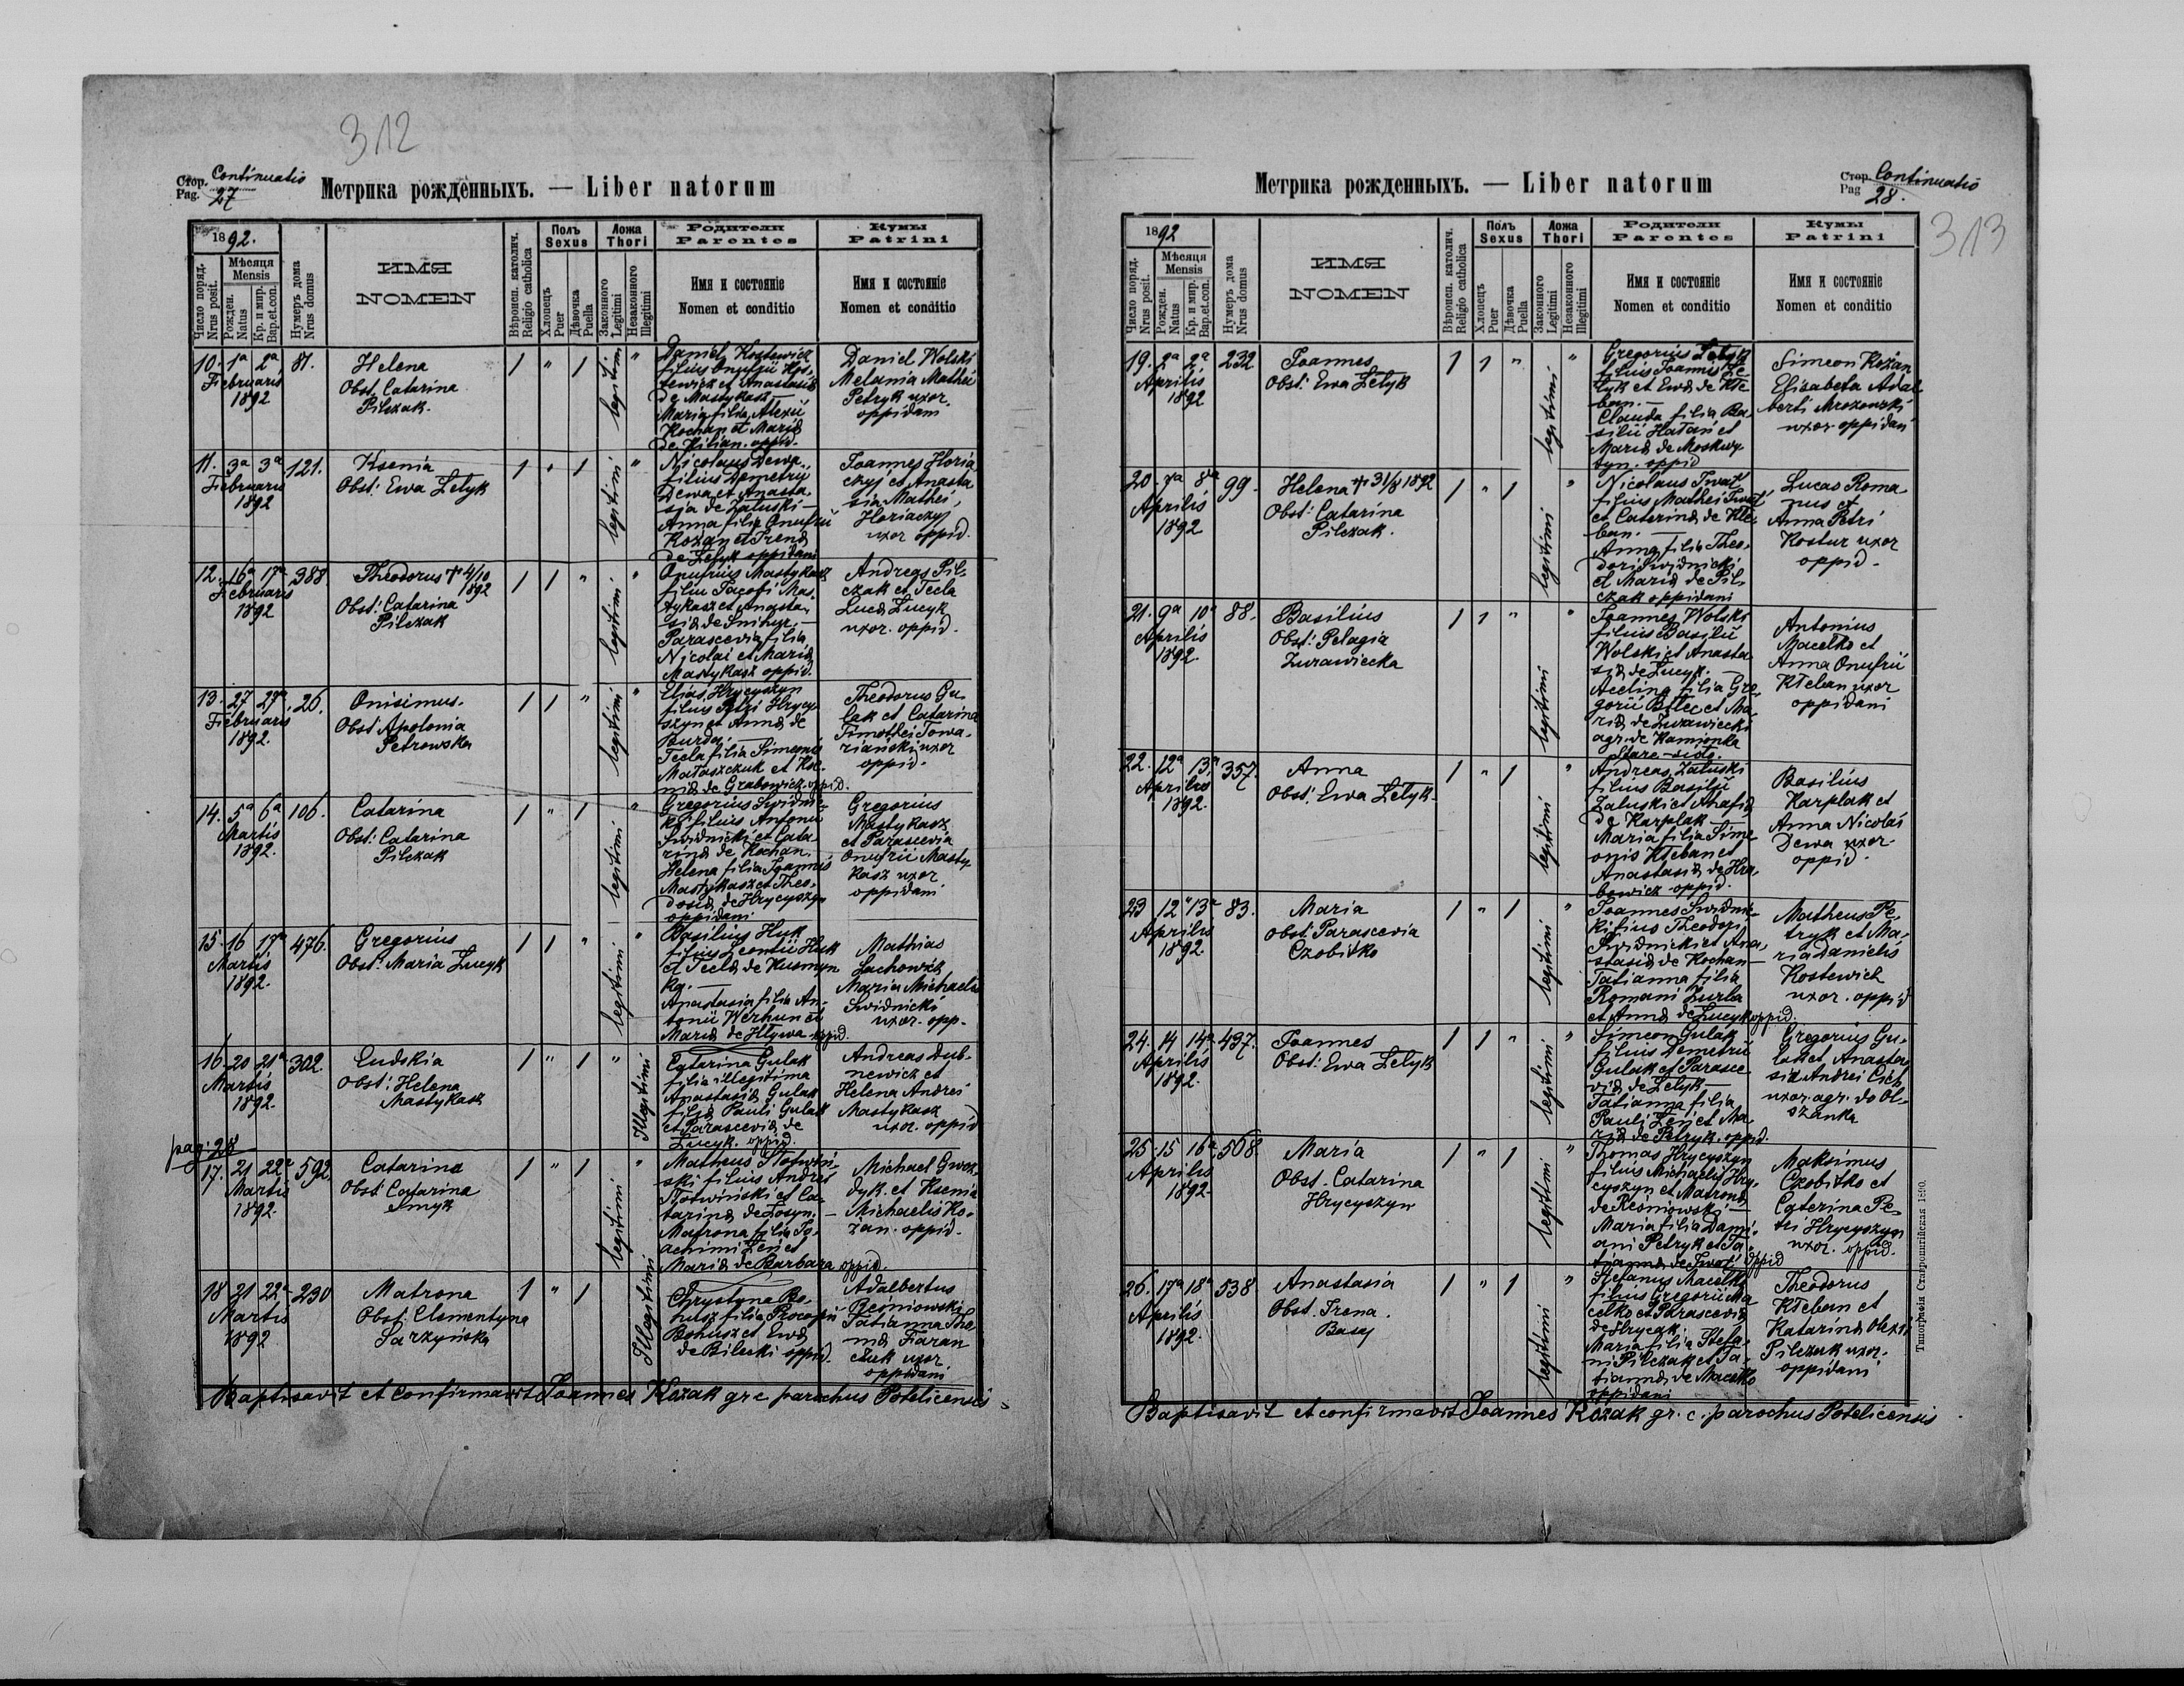 312
Стор. Continuatio
Pag. 27
Метрика рожденныхъ. — Liber natorum
1892.
Число поряд.
Nrus posit.
Мѣсяця
Mensis
Рожден.
Natus
Кр. и мир.
Bap.et.con.
Нумеръ дома
Nrus domus
ИМЯ
NOMEN
Вѣроисп. католич.
Religio catholica
Полъ
Sexus
Хлопецъ
Puer
Дѣвочка
Puella
Ложа
Thori
Законного
Legitimi
Незаконного
Illegitimi
Родители
Parentes
Имя и состоянiе
Nomen et conditio
Кумы
Patrini
Имя и состоянiе
Nomen et conditio
10. 1ª 2ª 81.
Februaris
1892
Helena
Obst. Catarina
Pilczak.
1 " 1 legitimi "
Daniel Kostewicz
filius Onufrii Kos-
tewicz et Anastasia
de Mastykasz —
Maria filia Alexii
Kochan et Maria
de Kilian. oppid.
Daniel Wolski
Melania Mathei
Petryk uxor.
oppidani
11. 3ª 3ª 121.
Februaris
1892
Ksenia
Obst: Ewa Zelyk
1 " 1 legitimi "
Nicolaus Dewa
filius Demetrii
Dewa et Anasta-
sia de Zaluski —
Anna filia Onufrii
Kozan et Irena
de Zelyk oppidani
Joannes Horia
czyj et Anasta
sia Mathei
Horiaczyj
uxor oppid.
12. 16ª 17ª 388
Februaris
1892
Theodorus + 4/10
1892
Obst: Catarina
Pilczak
1 1 " legitimi "
Onufrius Mastykasz
filiu Jacobi Mas-
tykasz et Anasta-
sia de Snihur. —
Parascevia filia
Nicolai et Maria
Mastykasz oppid.
Andreas Pil-
czak et Tecla
Luca Lucyk
uxor. oppid.
13. 27 27ª 26.
Februaris
1892.
Onisimus.
Obst Apolonia
Petrowska
1 1 " legitimi "
Elias Hrycyszyn
filius Petri Hrycy-
szyn et Anna de
Burda. —
Tecla filia Simeonis
Mataszczuk et Kse-
nia de Grabowicz. oppid.
Theodorus Gu-
lak et Catarina
Timothei Towa-
rianski uxor
oppid.
14. 5ª 6ª 106.
Martis
1892.
Catarina
Obst: Catarina
Pilczak
1 " 1 legitimi "
Gregorius Swidnic-
ki filius Antonii
Swidnicki et Cata-
rina de Kochan.
Helena filia Joannis
Mastykasz et Theo-
dosia de Hrycyszyn
oppidani
Gregorius
Mastykasz
et Parascevia
Onufrii Masty
kasz uxor
oppidani
15. 16 17ª 476.
Martis
1892.
Gregorius
Obst: Maria Lucyk
1 1 " legitimi "
Basilius Huk
filius Leontii Huk
et Tecla de Kusmyn
ka. —
Anastasia filia An-
tonii Werhun et
Maria de Hlywa oppid.
Mathias
Lachowicz
Maria Michaelis
Swidnicki
uxor. opp.
16. 20 21ª 302.
Martis
1892.
Eudokia
Obst: Helena
Mastykasz
1 " 1 " Illegitimi
Catarina Gulak
filia illegitima
Anastasia Gulak
filia Pauli Gulak
et Parascevia de
Lucyk. oppid.
Andreas Dub-
newicz et
Helena Andrei
Mastykasz
uxor. oppid
pag: 28
17. 21 22ª 592.
Martis
1892.
Catarina
Obst: Catarina
Smyk
1 " 1 legitimi "
Matheus Slotwin-
ski filius Andrei
Slotwiński et Ca-
tarina de Losyn. —
Matrona filia Jo-
achimi Zeń et
Maria de Barbara oppid.
Michael Gwoz-
dyk. et Ksenia
Michaelis Ko-
zan. oppid.
18 21 22ª 230
Martis
1892
Matrona
Obst: Clementyna
Sarzyńska
1 " 1 Illegitimi
Chrystyna Bo-
husz filia Procopii
Bohusz et Ewa
de Bilecki oppid.
Adalbertus
Reśniowski
Tatianna Tho
ma Faran
czuk uxor
oppidani
Baptisavit et confirmavit Joannes Kozak gr c parochus Potelicensis
Стор. Continuatio
Pag 28.
313
Метрика рожденныхъ. — Liber natorum
1892
Число поряд.
Nrus posit.
Мѣсяця
Mensis
Рожден.
Natus
Кр. и мир.
Bap.et.con.
Нумеръ дома
Nrus domus
ИМЯ
NOMEN
Вѣроисп. католич.
Religio catholica
Полъ
Sexus
Хлопецъ
Puer
Дѣвочка
Puella
Ложа
Thori
Законного
Legitimi
Незаконного
Illegitimi
Родители
Parentes
Имя и состоянiе
Nomen et conditio
Кумы
Patrini
Имя и состоянiе
Nomen et conditio
19. 2ª 2ª 232
Aprilis
1892
Joannes
Obst: Ewa Zelyk
1 1 " legitimi "
Gregorius Zelyk
filius Joannis Ze-
lyk et Ewa de Kle-
ban. —
Clauda filia Ba-
silii Hatan et
Maria de Moskwy-
tyn. oppid
Simeon Kozan
Elisabeta Adal
berti Mrozowski
uxor oppidani
20. 7ª 8ª 99.
Aprilis
1892
Helena + 31/8 1892
Obst: Catarina
Pilczak.
1 " 1 legitimi "
Nicolaus Iwat
filius Mathei Iwat
et Caterina de Kle-
ban. —
Anna filia Theo-
dori Swidnicki
et Maria de Pil-
czak oppidani
Lucas Roma
nus et
Anna Petri
Kostur uxor
oppid.
21. 9ª 10ª 88.
Aprilis
1892.
Basilius
Obst: Pelagia
Zurawiecka
1 1 " legitimi "
Joannes Wolski
filius Basilii
Wolski et Anasta
sia de Lucyk. —
Avelina filia Gre-
gorii Bilec et Ma-
ria de Zurawiecki
agr. de Kamionka
Stare-sioło
Antonius
Macelko et
Anna Onufrii
Kleban uxor
oppidani
22. 12ª 13ª 357.
Aprilis
1892.
Anna
Obst. Ewa Zelyk.
1 " 1 legitimi "
Andreas Zaluski
filius Basilii
Zaluski et Ahafia
de Karplak —
Maria filia Sime-
onis Kleban et
Anastasia de Hra-
bowicz oppid.
Basilius
Karplak et
Anna Nicolai
Dewa uxor
oppid.
23 12ª 13ª 83.
Aprilis
1892.
Maria
Obst Parascevia
Czobitko
1 " 1 legitimi "
Joannes Swidnic-
ki filius Theodori
Swidnicki et Ana-
stasia de Kochan —
Tatianna filia
Romani Zurla
et Anna de Lucyk oppid.
Matheus Pe-
tryk et Ma-
ria Danielis
Kostewicz
uxor. oppid
24. 14 14ª 497.
Aprilis
1892.
Joannes
Obst: Ewa Zelyk
1 1 " legitimi "
Simeon Gulak
filius Demetrii
Gulak et Parasce
via de Zelyk —
Tatianna filia
Pauli Zeń et Ma-
ria de Petryk. oppid.
Gregorius Gu-
lak et Anasta-
sia Andrei Cich
uxor. agr. do Ol-
szanka
25. 15 16ª 568.
Aprilis
1892.
Maria
Obst. Catarina
Hrycyszyn
1 " 1 legitimi "
Thomas Hrycyszyn
filius Michaelis Hry-
cyszyn et Matrona
de Reśniowski —
Maria filia Dami-
ani Petryk et Ta-
tianna de Iwat oppid
Maksimus
Czobitko et
Caterina Pe-
tri Hrycyszyn
uxor. oppid.
26. 17ª 18ª 538
Aprilis
1892.
Anastasia
Obst. Irena.
Basaj
1 " 1 legitimi "
Stefanus Macelko
filius Gregorii Ma
celko et Parascevia
de Hrycak.
Maria filia Stefa-
ni Pilczak et Ta-
tianna de Macelko
oppidani
Theodorus
Kleban et
Katarina Olexii
Pilczak uxor.
oppidani
Baptisavit et confirmavit Joannes Kozak gr. c. parochus Potelicensis
Типографія Ставропигійская 1890.